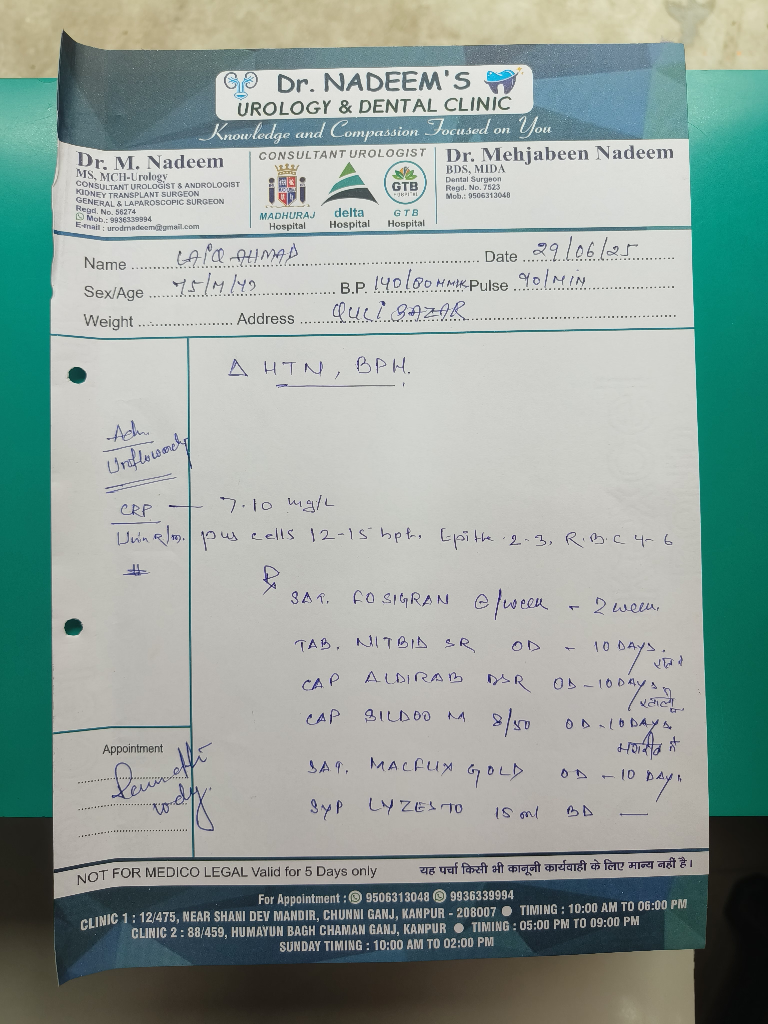 Dr. NADEEM'S
UROLOGY & DENTAL CLINIC
Knowledge and Compassion Focused on You
Dr. M. Nadeem
MS, MCH-Urology
CONSULTANT UROLOGIST & ANDROLOGIST
KIDNEY TRANSPLANT SURGEON
GENERAL & LAPAROSCOPIC SURGEON
Regd. No. 56274
Mob.: 9936339994
E-mail : urodrnadeem@gmail.com
CONSULTANT UROLOGIST
MADHURAJ
Hospital
delta
Hospital
GTB
HOSPITAL
GTB
Hospital
Dr. Mehjabeen Nadeem
BDS, MIDA
Dental Surgeon
Regd. No. 7523
Mob.: 9506313048
Name LAIQ AHMAD Date 29/06/25
Sex/Age 75/M/ B.P. 140/80 MMHK Pulse 90/MIN
Weight Address QULI BAZAR
Δ HTN, BPH.
Adv.
CRP — 7.10 mg/L
Urin R/m. pus cells 12-15 hpf. Epithe 2-3, R.B.C 4-6
#
℞
SAT. FOSIGRAN /week - 2 week.
TAB. NITBID SR OD - 10 DAYS.
CAP ALDIRAB DSR OD - 10 DAYS
CAP SILDOO M 8/50 OD - 10 DAYS
SAT. MACFLIX GOLD OD - 10 DAYS
SYP LYZESTO 15 ml BD —
Appointment
NOT FOR MEDICO LEGAL Valid for 5 Days only
यह पर्चा किसी भी कानूनी कार्यवाही के लिए मान्य नहीं है।
For Appointment : 9506313048 9936339994
CLINIC 1 : 12/475, NEAR SHANI DEV MANDIR, CHUNNI GANJ, KANPUR - 208007 ● TIMING : 10:00 AM TO 06:00 PM
CLINIC 2 : 88/459, HUMAYUN BAGH CHAMAN GANJ, KANPUR ● TIMING : 05:00 PM TO 09:00 PM
SUNDAY TIMING : 10:00 AM TO 02:00 PM